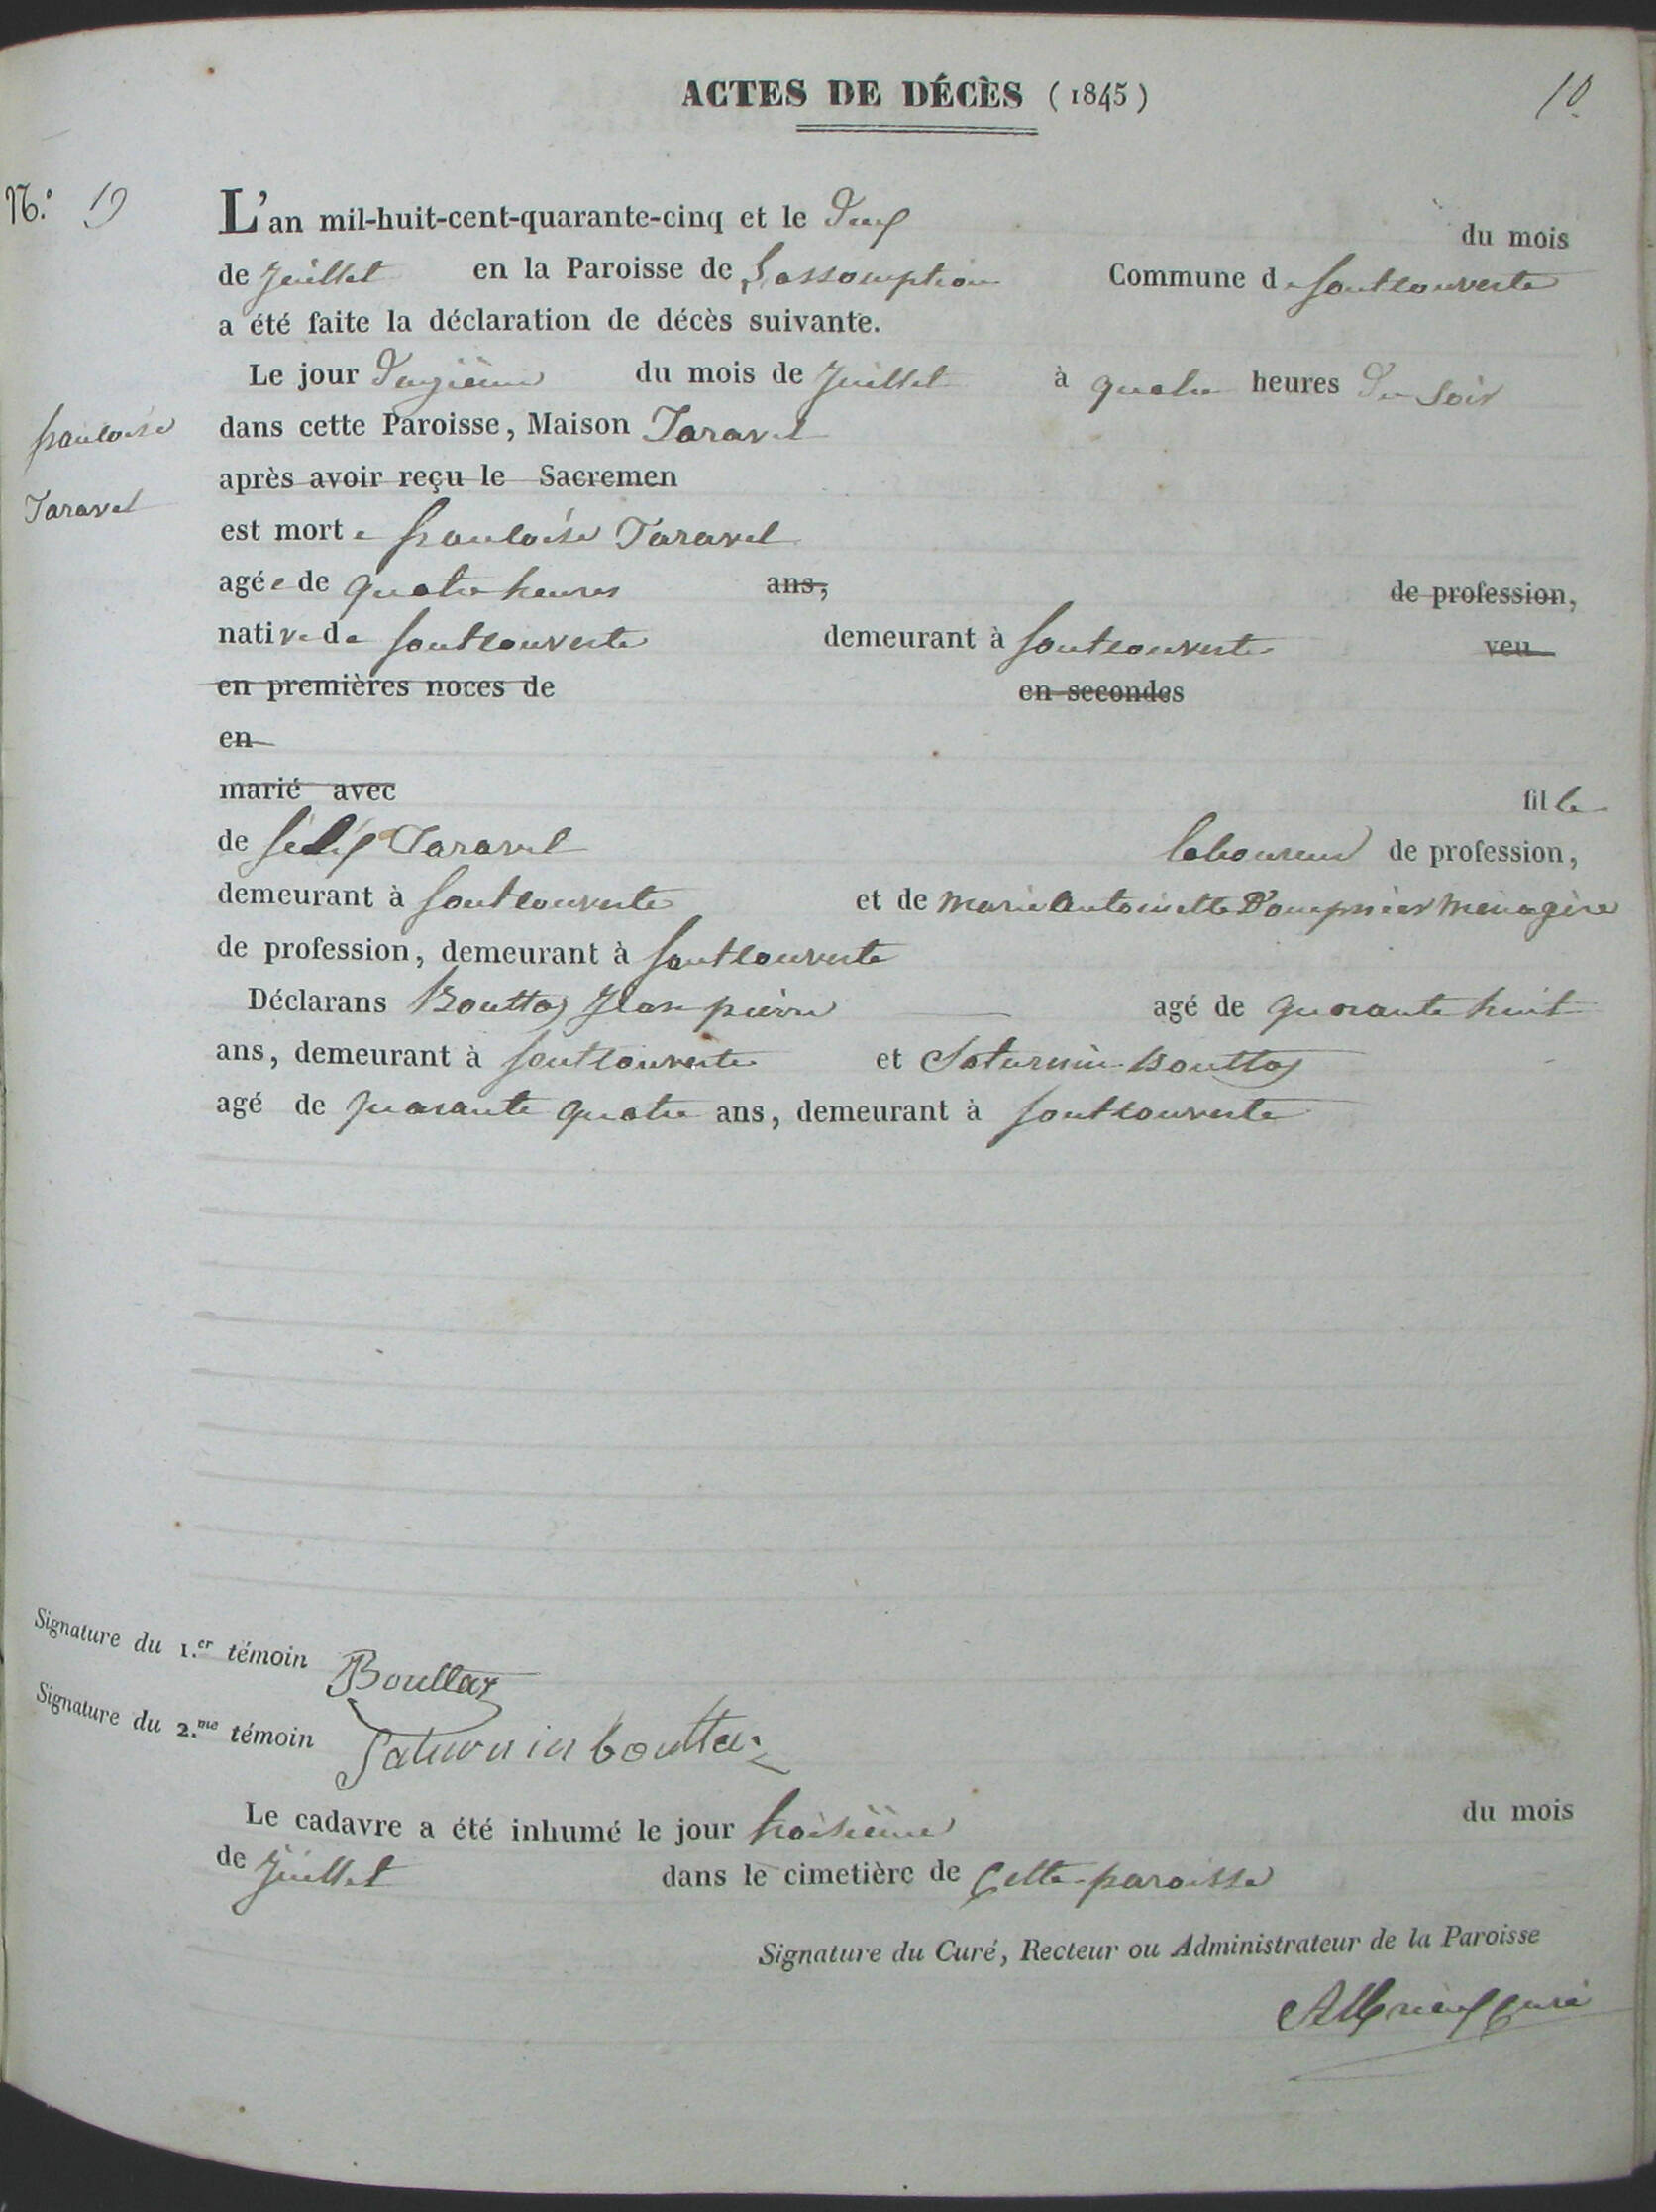 ACTES DE DÉCÈS (1845)
10.
N.° 19
L'an mil-huit-cent-quarante-cinq et le Deux du mois
de Juillet en la Paroisse de Lassomption Commune de fontcouverte
a été faite la déclaration de décès suivante.
Le jour Deuxième du mois de Juillet à quatre heures Du Soir
françoise
dans cette Paroisse, Maison Taravel
après avoir reçu le Sacremen
Taravel
est morte françoise Taravel
agée de quatre heures ans, de profession,
native de fontcouverte demeurant à fontcouverte veu
en premières noces de en secondes
en
marié avec fille
de félix Taravel laboureur de profession,
demeurant à fontcouverte et de marie antoinette Dompnier ménagère
de profession, demeurant à fontcouverte
Déclarans Bouttaz Jean pierre agé de quarante huit
ans, demeurant à fontcouverte et Saturnin Bouttaz
agé de quarante quatre ans, demeurant à fontcouverte
Signature du 1.er témoin Bouttaz
Signature du 2.me témoin Saturnin bouttaz
Le cadavre a été inhumé le jour troisième du mois
de Juillet dans le cimetière de Cette paroisse
Signature du Curé, Recteur ou Administrateur de la Paroisse
curé